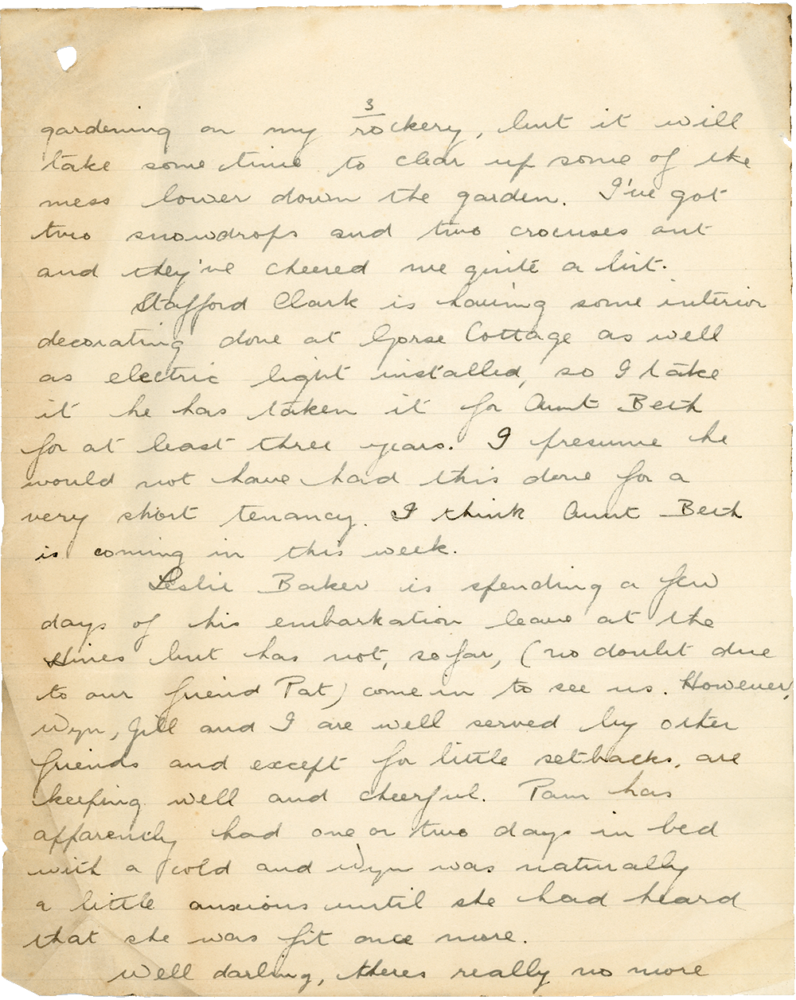 3
gardening on my rockery, but it will
take some time to clear up some of the
mess lower down the garden. I've got
two snowdrops and two crocuses out
and they've cheered me quite a bit.
Stafford Clark is having some interior
decorating done at Gorse Cottage as well
as electric light installed, so I take
it he has taken it for Aunt Beth
for at least three years. I presume he
would not have had this done for a
very short tenancy. I think Aunt Beth
is coming in this week.
Leslie Baker is spending a few
days of his embarkation leave at the
Hines but has not, so far, (no doubt due
to our friend Pat) come in to see us. However,
Wyn, Jill and I are well served by other
friends and except for little setbacks, are
keeping well and cheerful. Pam has
apparently had one or two days in bed
with a cold and Wyn was naturally
a little anxious until she had heard
that she was fit once more.
Well darling, theres really no more